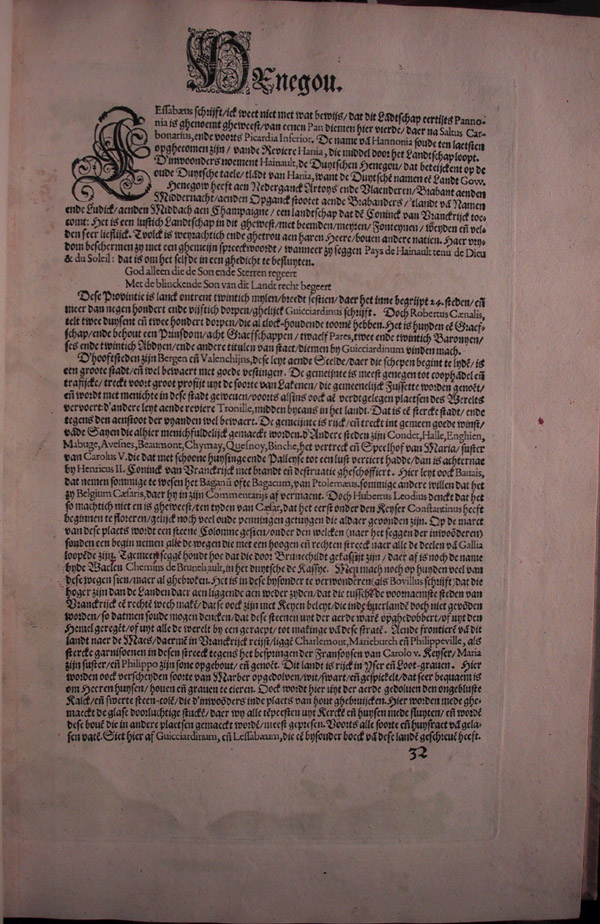 HEnegou.
LEssabæus schrijft/ick weet niet met wat bewijs/ dat dit Lādtschap eertijts Panno-
nia is ghenoemt gheweest/van eenen Pan diemen hier vierde/ daer na Saltus Car-
bonarius, ende voorts Picardia Inferior. De name vā Hannonia soude ten laetsten
opghecomen zijn/ vande Reviere Hania, die middel door het Landtschap loopt.
D'inwoonders noement Hainault, de Duytschen Henegou/ dat beteijckent op de
oude Duytsche taele/ tlādt van Hania, want de Duytschē namen eē Landt Gow.
Henegow heeft aen Nederganck Artoys ende Vlaenderen/ Brabant aenden
Middernacht/ aenden Opganck stootet aende Brabanders/ 'tlandt vā Namen
ende Ludick/ aenden Middach aen Champaigne/ een landtschap dat dē Coninck van Vranckrijck toe-
comt: Het is een lustich Landtschap in dit ghewest/met beemden/meyren/ Fonteynen/ weyden eñ vel-
den seer lieflijck. Tvolck is weyrachtich ende ghetrou aen haren Heere/boven andere natien. Haer vry-
dom beschermen zy met een ghemeijn spreeckwoordt/ wanneer zy seggen Pays de Hainault tenu de Dieu
& du Soleil: dat is om het selfde in een ghedicht te besluyten.
God alleen die de Son ende Sterren regeert
Met de blinckende Son van dit Landt recht begeert
Dese Provintie is lanck ontrent twintich mylen/breedt sestien/ daer het inne begrijpt 24. steden/ eñ
meer dan negen hondert ende vijftich dorpen/ghelijck Guicciardinus schrijft. Doch Robertus Cænalis,
telt twee duysent eñ twee hondert dorpen/ die al clock-houdende toornē hebben. Het is huyden eē Graef-
schap/ende behout een Prinsdom/acht Graefschappen/ twaelf Pares, twee ende twintich Baronyen/
ses ende twintich Abdyen/ ende andere titulen van staet/diemen by Guicciardinum vinden mach.
D'hooftsteden zijn Bergen eñ Valenchijns, dese leyt aende Scelde/ daer die schepen begint te lydē/ is
een groote stadt/ eñ wel bewaert met goede vestingen. De gemeijnte is meest genegen tot coophādel eñ
trafijcke/ treckt voort groot profijt uyt de soorte van Lakenen/ die gemeenelijck Fussette worden genoēt/
eñ wordt met menichte in dese stadt geweven/ voorts alsins oock al verdtgelegen plaetsen des Werelts
vervoert d'andere leyt aende reviere Tronille, midden bycans in het landt. Dat is eē stercke stadt/ ende
tegens den aenstoot der vyanden wel bewaert. De gemeijnte is rijck/eñ treckt int gemeen goede winst/
vāde Sayen die alhier menichfuldelijck gemaeckt worden. d'Andere steden zijn Condet, Halle, Enghien,
Mabuge, Avesnes, Beaumont, Chymay, Quesnoy, Binche, het vertreck eñ Speelhof van Maria/ suster
van Carolus V. die dat met schoone huysinge ende Palleyse tot een lust verciert hadde/ dan is achternae
by Henricus II. Coninck van Vranckrijck met brandt eñ destructie gheschoffiert. Hier leyt oock Banais,
dat nemen sommige te wesen het Baganū ofte Bagacum, van Ptolemæus. sommige andere willen dat het
zy Belgium Cæsaris, daer hy in zijn Commentarijs af vermaent. Doch Hubertus Leodius denckt dat het
so machtich niet en is gheweest/ten tyden van Cæsar, dat het eerst onder den Keyser Constantinus heeft
beginnen te floreren/gelijck noch veel oude penningen getuygen die aldaer gevonden zijn. Op de marct
van dese plaets wordt een steene Colomne gesien/onder den welcken (naer het seggen der inwoōderen)
souden een begin nemen alle de wegen die met een hoogen eñ rechten streeck naer alle de deelen vā Gallia
loopēde zijn. Tgemeen seggē houdt hoe dat die door Brunehildt gekalsijt zijn/ daer af is noch de name
byde Waelen Chemins de Brunehault, in het duytsche de Kassye. Men mach noch op huyden veel van
dese wegen sien/maer al ghebroken. Het is in dese bysonder te verwonderen (als Bovillus schrijft) dat die
hoger zijn dan de Landen daer aen liggende aen weder zyden/ dat die tusschē de voornaemste steden van
Vranckrijck eē rechtē wech makē/ dat se oock zijn met Keyen beleyt/die inde huerlandē doch niet gevōden
worden/ so datmen soude mogen dencken/ dat dese steenen uyt der aerde warē opghedobbert/ of uyt den
Hemel geregēt/ of uyt alle de werelt by een geraept/ tot makinge vā dese stratē. Aende frontierē vā dit
landt naer de Maes/ daermē in Vranckrijck reijst/liggē Charlemont, Marieburch eñ Philippeville, als
stercke garnisoenen in desen streeck tegens het bespringen der Fransoysen van Carolo v. Keyser/ Maria
zijn suster/eñ Philippo zijn sone opgebout/ eñ genoēt. Dit landt is rijck in Yser eñ Loot-grauen. Hier
worden oock verscheyden soorte van Marber opgedolven/wit/swart/ eñ gespickelt/ dat seer bequaem is
om Heeren huysen/ hoven eñ graven te cieren. Oock wordt hier uyt der aerde gedolven den ongebluste
Kalck/ eñ swerte steen-colē/ die d'inwoōders inde plaets van hout ghebruijcken. Hier worden mede ghe-
maeckt de glase doorluchtige stuckē/ daer wy alle tēpeesten uyt Kerckē eñ huysen mede sluyten/ eñ wordē
dese bovē die in andere plaetsen gemaeckt wordē/ meest gepresen. Voorts alle soorte eñ huysraet vā gela-
sen vatē. Siet hier af Guicciardinum, eñ Lessabæum, die eē bysonder boeck vā dese landē geschrevē heeft.
32